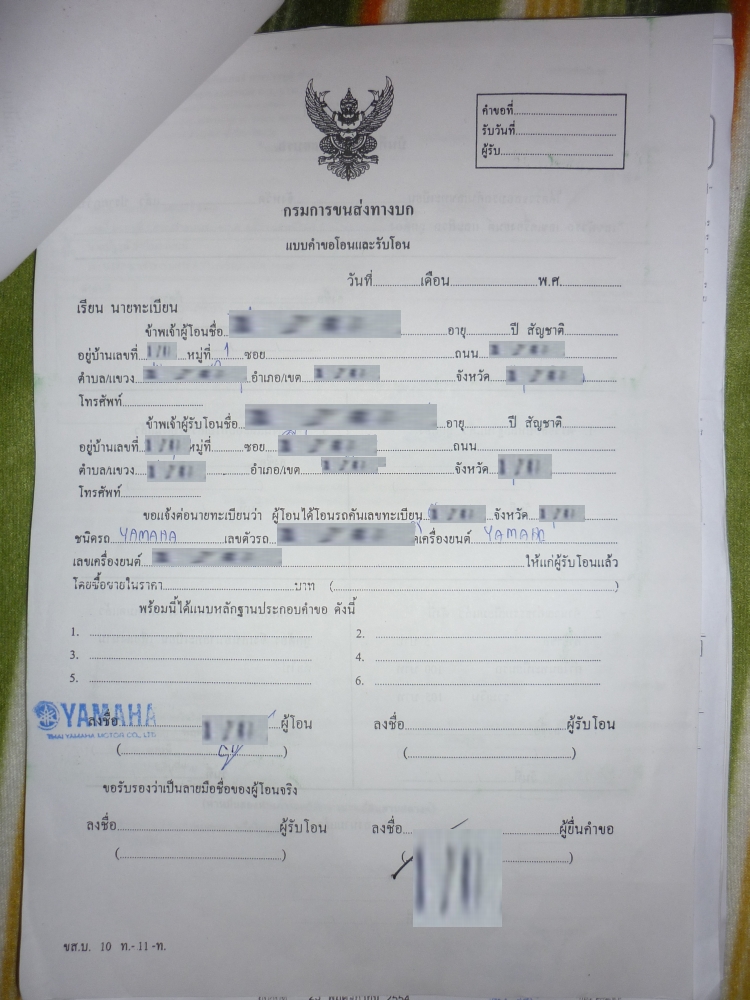 คำขอที่..............................
รับวันที่..............................
ผู้รับ..............................
กรมการขนส่งทางบก
แบบคำขอโอนและรับโอน
วันที่..............เดือน..............................พ.ศ..............................
เรียน นายทะเบียน
ข้าพเจ้าผู้โอนชื่อ..............................อายุ..............ปี สัญชาติ..............
อยู่บ้านเลขที่..............หมู่ที่ 1 ซอย..............................ถนน..............................
ตำบล/แขวง..............................อำเภอ/เขต..............................จังหวัด..............................
โทรศัพท์..............................
ข้าพเจ้าผู้รับโอนชื่อ..............................อายุ..............ปี สัญชาติ..............
อยู่บ้านเลขที่..............หมู่ที่..............ซอย..............................ถนน..............................
ตำบล/แขวง..............................อำเภอ/เขต..............................จังหวัด..............................
โทรศัพท์..............................
ขอแจ้งต่อนายทะเบียนว่า ผู้โอนได้โอนรถคันเลขทะเบียน..............จังหวัด..............
ชนิดรถ YAMAHA เลขตัวรถ..............................เครื่องยนต์ YAMAHA
เลขเครื่องยนต์..............................ให้แก่ผู้รับโอนแล้ว
โดยซื้อขายในราคา..............................บาท (..............................)
พร้อมนี้ได้แนบหลักฐานประกอบคำขอ ดังนี้
1. .............................. 2. ..............................
3. .............................. 4. ..............................
5. .............................. 6. ..............................
YAMAHA
THAI YAMAHA MOTOR CO., LTD.
ลงชื่อ..............................ผู้โอน ลงชื่อ..............................ผู้รับโอน
(..............................) (..............................)
ขอรับรองว่าเป็นลายมือชื่อของผู้โอนจริง
ลงชื่อ..............................ผู้รับโอน ลงชื่อ..............................ผู้ยื่นคำขอ
(..............................) (..............................)
ขส.บ. 10 ท.-11-ท.